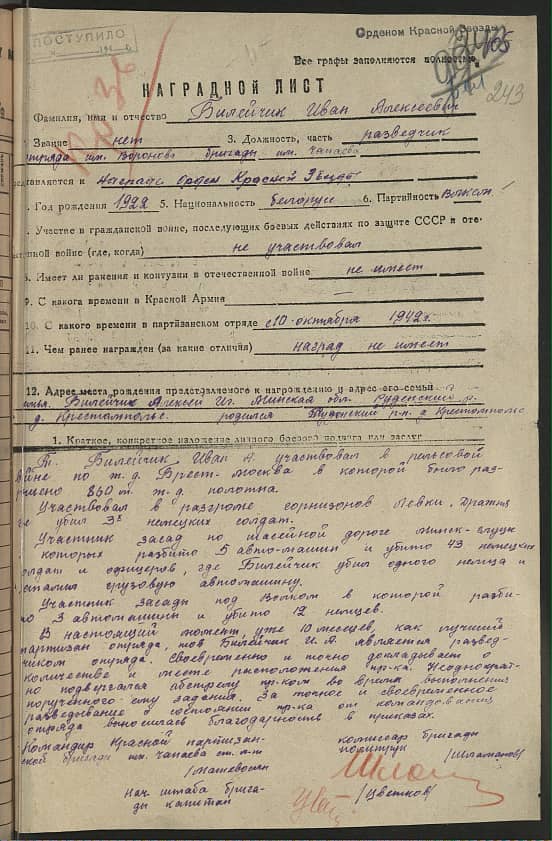 ПОСТУПИЛО
Орденом Красной Звезды
243
Все графы заполняются полностью
НАГРАДНОЙ ЛИСТ
Фамилия, имя и отчество Билейчик Иван Алексеевич
Звание нет 3. Должность, часть разведчик
отряда им. Воронова бригады им. Чапаева
Представляется к награде Орден Красной Звезды
Год рождения 1922 5. Национальность белорус 6. Партийность
Участие в гражданской войне, последующих боевых действиях по защите СССР и оте-
чественной войне (где, когда) не участвовал
8. Имеет ли ранения и контузии в отечественной войне не имеет
9. С какого времени в Красной Армии
10. С какого времени в партизанском отряде с 10 октября 1942 г.
11. Чем ранее награжден (за какие отличия) наград не имеет
12. Адрес места рождения представляемого к награждению и адрес его семьи
Билейчик Алексей Иг. Минская обл. Руденский р-н
д. Крестамполье. родился Руденский р-н д. Крестамполье
1. Краткое, конкретное изложение личного боевого подвига или заслуг
Т. Билейчик Иван А. участвовал в рельсовой
войне по ж.д. Брест-Москва в которой было раз-
рушено 860 м. ж.д. полотна.
Участвовал в разгроме гарнизонов Левки,
где убил 3х немецких солдат.
Участник засад по шассейной дороге Минск-Слуцк
в которых разбито 5 авто-машин и убито 43 немецких
солдат и офицеров, где Билейчик убил одного немца и
спалил грузовую автомашину.
Участник засады под Волком в которой разби-
то 3 автомашины и убито 12 немцев.
В настоящий момент, уже 10 месяцев, как лучший
партизан отряда, тов Билейчик И. А. является развед-
чиком отряда. Своевременно и точно докладывает о
количестве и месте расположения пр-ка. Неоднократ-
но подвергался обстрелу пр-ком во время выполнения
порученного ему задания. За точное и своевременное
разведывание состояния пр-ка от командования
отряда выносилась благодарность в приказах.
Командир Красной партизан-
ской бригады им. Чапаева
/Матевосян
комиссар бригады
политрук /Шламанов/
нач штаба брига-
ды капитан /Цветков/